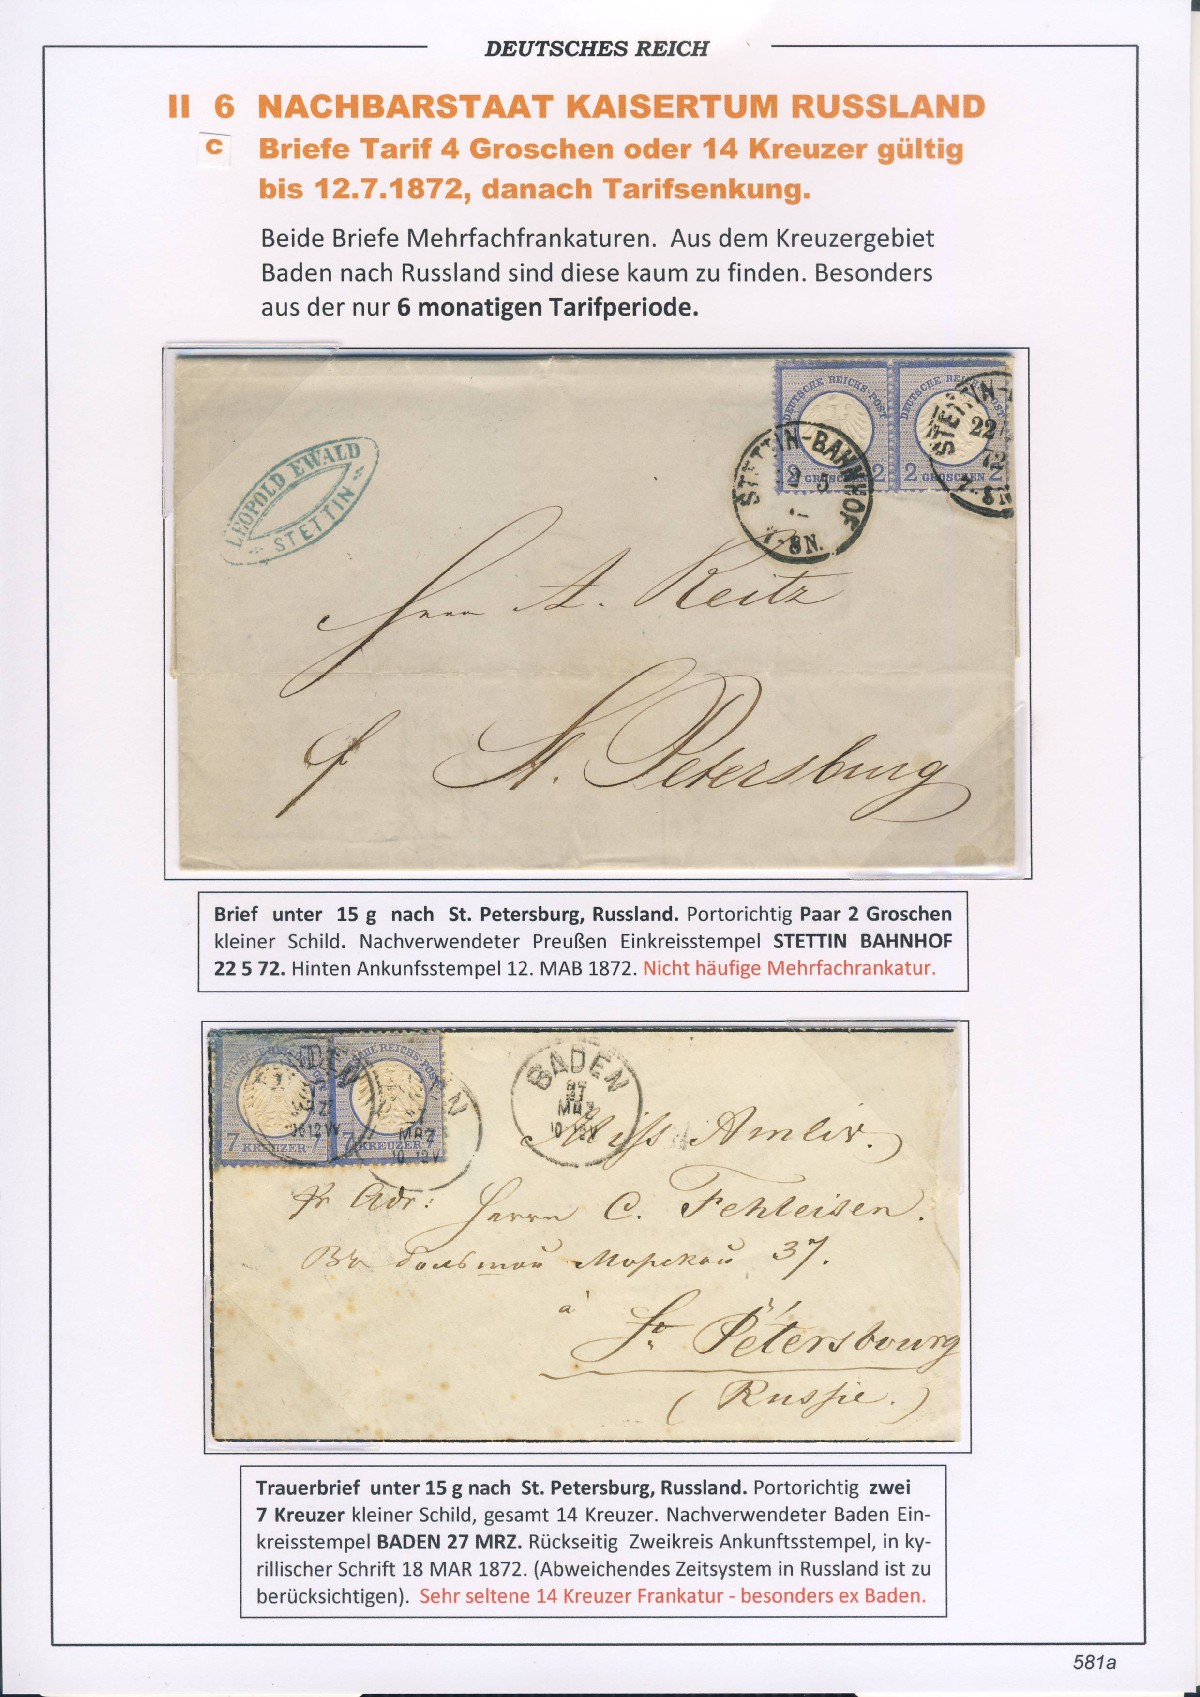 DEUTSCHES REICH
II 6 NACHBARSTAAT KAISERTUM RUSSLAND
C Briefe Tarif 4 Groschen oder 14 Kreuzer gültig
bis 12.7.1872, danach Tarifsenkung.
Beide Briefe Mehrfachfrankaturen. Aus dem Kreuzergebiet
Baden nach Russland sind diese kaum zu finden. Besonders
aus der nur 6 monatigen Tarifperiode.
DEUTSCHE REICHS-POST
2 GROSCHEN 2
DEUTSCHE REICHS-POST
2 GROSCHEN 2
STETTIN-BAHNHOF
7-8N.
STETTIN
22
72
7-8N
LEOPOLD EWALD
STETTIN
Herrn A. Keitz
St. Petersburg
Brief unter 15 g nach St. Petersburg, Russland. Portorichtig Paar 2 Groschen
kleiner Schild. Nachverwendeter Preußen Einkreisstempel STETTIN BAHNHOF
22 5 72. Hinten Ankunfsstempel 12. MAB 1872. Nicht häufige Mehrfachrankatur.
7 KREUZER 7
DEUTSCHE REICHS-POST
7 KREUZER 7
BADEN
27
MRZ
10-12V
Miss
pr Adr: Herrn C. Fehleisen.
Въ большой Морской 37.
à
St. Pétersbourg
(Russie.)
Trauerbrief unter 15 g nach St. Petersburg, Russland. Portorichtig zwei
7 Kreuzer kleiner Schild, gesamt 14 Kreuzer. Nachverwendeter Baden Ein-
kreisstempel BADEN 27 MRZ. Rückseitig Zweikreis Ankunftsstempel, in ky-
rillischer Schrift 18 MAR 1872. (Abweichendes Zeitsystem in Russland ist zu
berücksichtigen). Sehr seltene 14 Kreuzer Frankatur - besonders ex Baden.
581a